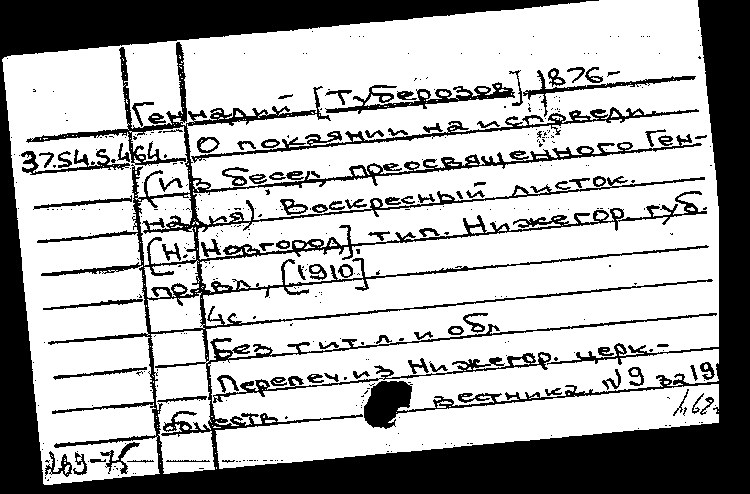 Геннадий [Туберозов] 1876-
37.54.5.464. О покаянии на исповеди.
(Из бесед преосвященного Ген-
надия). Воскресный листок.
[Н.-Новгород], тип. Нижегор. губ.
правл., [1910].
4с.
Без тит. л. и обл.
Перепеч. из Нижегор. церк.-
обществ. вестника. N 9 за 191
269-75